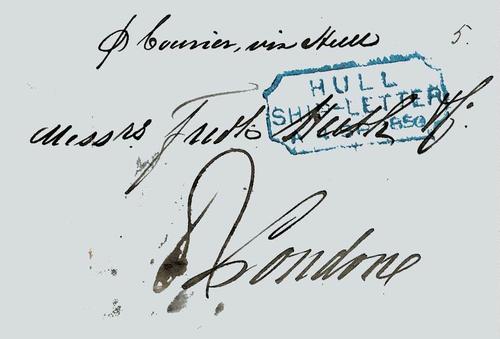 ℘ Courier, via Hull
5.
HULL
SHIP-LETTER
1850
Messrs Fredk Huth & Co.
London